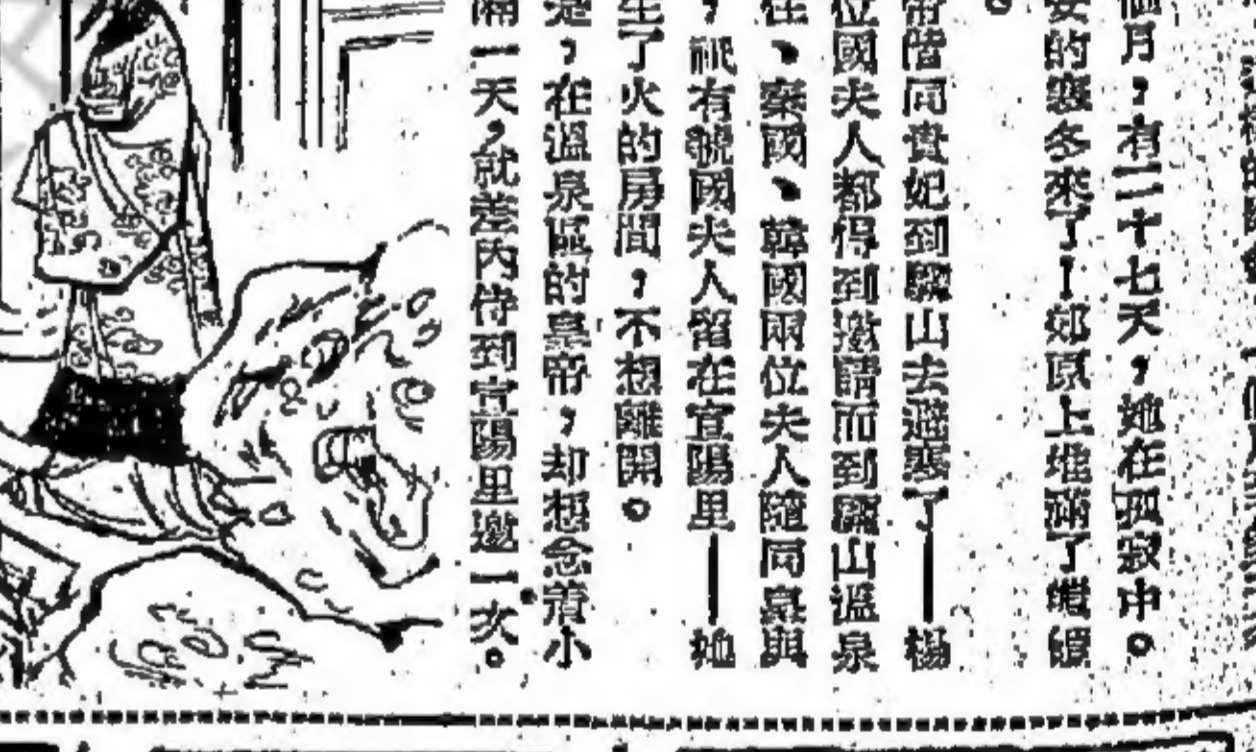 個月，有二十七天，她在孤寂中。
安的寒冬來了！郊原上堆滿了皚皚
。
帝偕同貴妃到驪山去避寒了——楊
位國夫人都得到邀請而到驪山溫泉
往、秦國、韓國兩位夫人隨同皇輿
，祇有虢國夫人留在宣陽里——她
生了火的房間，不想離開。
是，在溫泉區的皇帝，却想念着小
隔一天，就差內侍到宣陽里邀一次。